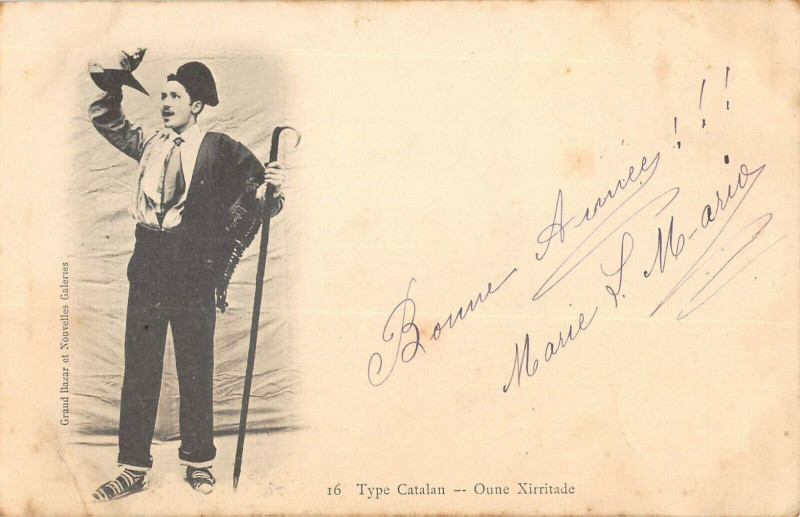 Grand Bazar et Nouvelles Galeries
Bonne Année!!!
Marie S. Mario
16 Type Catalan -- Oune Xirritade